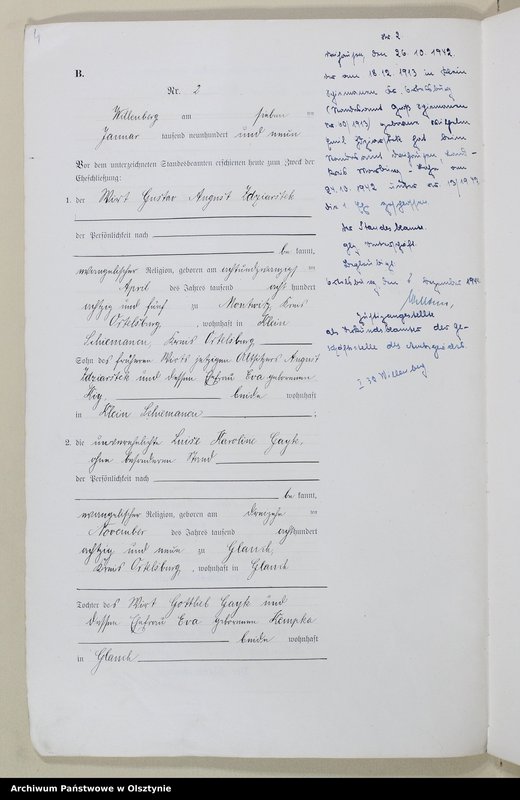 B.
Nr. 2
Willenberg am sieben ten
Januar tausend neunhundert und neun
Vor dem unterzeichneten Standesbeamten erschienen heute zum Zweck der
Eheschließung:
1. der Wirt Gustav August Zdziarstek
der Persönlichkeit nach
be kannt,
evangelischer Religion, geboren am achtundzwanzig ten
April des Jahres tausend acht hundert
achtzig und fünf zu Montwitz, Kreis
Ortelsburg, wohnhaft in Klein
Schiemanen, Kreis Ortelsburg
Sohn des früheren Wirts jetzigen Altsitzers August
Zdziarstek und dessen Ehefrau Eva geborenen
beide wohnhaft
in Klein Schiemanen ;
2. die unverehelichte Luise Karoline Gayk,
ohne besonderen Stand
der Persönlichkeit nach
be kannt,
evangelischer Religion, geboren am dreizehn ten
November des Jahres tausend acht hundert
achtzig und neun zu Glauch,
Kreis Ortelsburg, wohnhaft in Glauch
Tochter des Wirt Gottlieb Gayk und
dessen Ehefrau Eva geborenen Kempka
beide wohnhaft
in Glauch
Nr. 2
den 26. 10. 1942
Der am 18. 12. 1913 in Klein
Schiemanen Kr. Ortelsburg
(Standesamt Groß Schiemanen
Nr. 1913) geborene Wilhelm
Emil hat beim
Standesamt
24. 10. 1942 unter Nr.
die 1. Ehe geschlossen.
Der Standesbeamte.
gez. Unterschrift.
Beglaubigt.
Ortelsburg, den Dezember 194
Justizangestellte
als Urkundsbeamter der Ge-
schäftsstelle des Amtsgerichts.
I 38 Willenberg
Archiwum Państwowe w Olsztynie